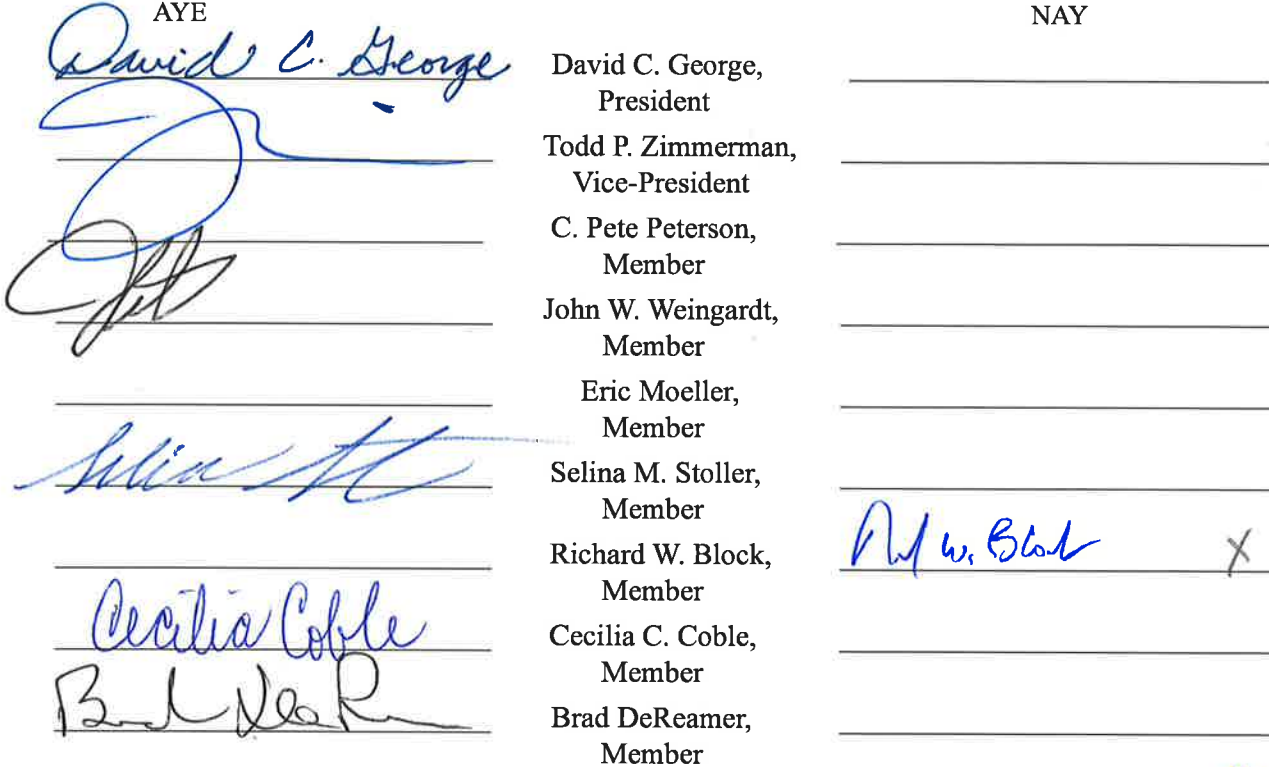 AYE NAY
David C. George David C. George,
President
Todd P. Zimmerman,
Vice-President
C. Pete Peterson,
Member
John W. Weingardt,
Member
Eric Moeller,
Member
Selina Selina M. Stoller,
Member
Richard W. Block, W. Block X
Member
Cecilia Coble Cecilia C. Coble,
Member
Brad DeReamer,
Member